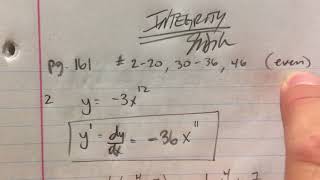 INTEGRITY
pg. 161 # 2-20, 30-36, 46 (even)
2 y = -3x^12
y' = dy/dx = -36x^11